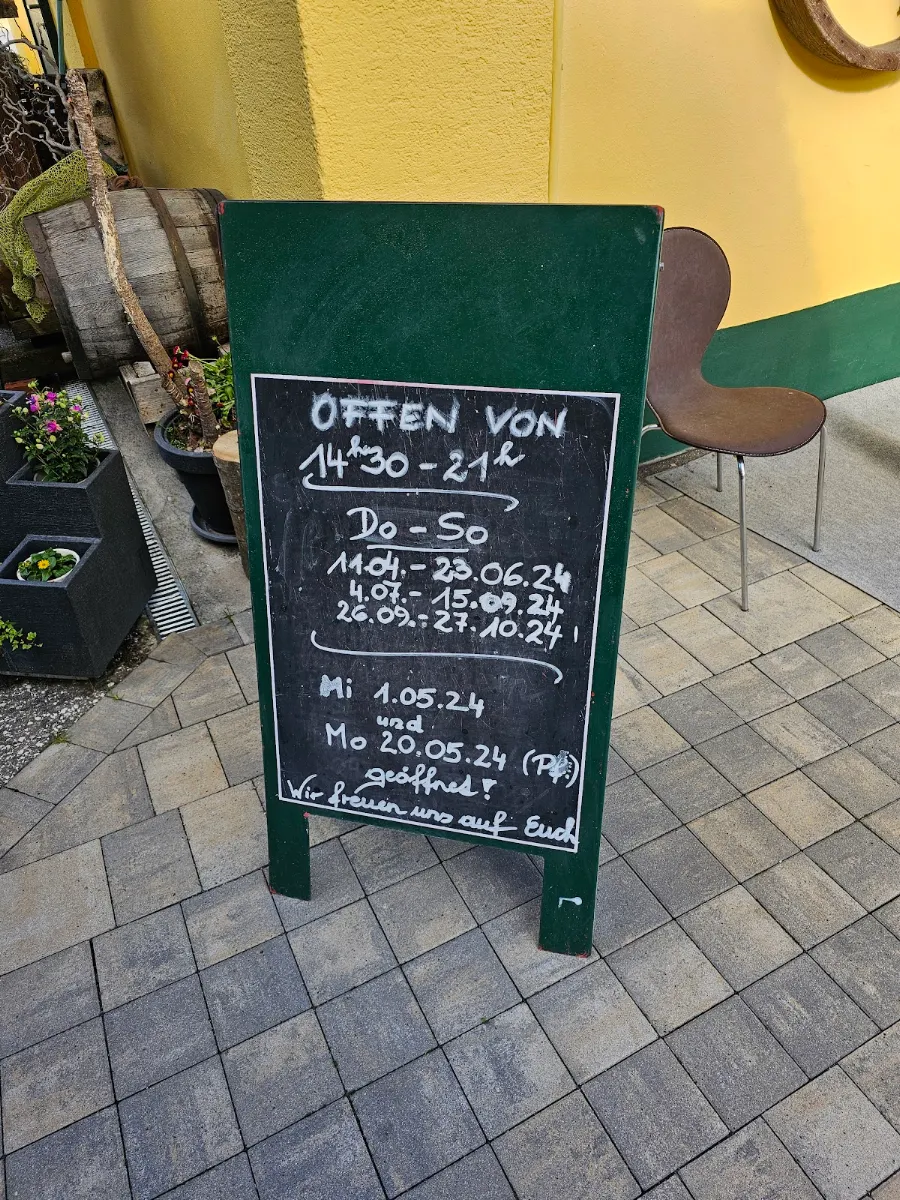 OFFEN VON
14h30 - 21h
Do - So
11.04. - 23.06.24
4.07. - 15.09.24
26.09. - 27.10.24!
Mi 1.05.24
und
Mo 20.05.24
geöffnet!
Wir freuen uns auf Euch